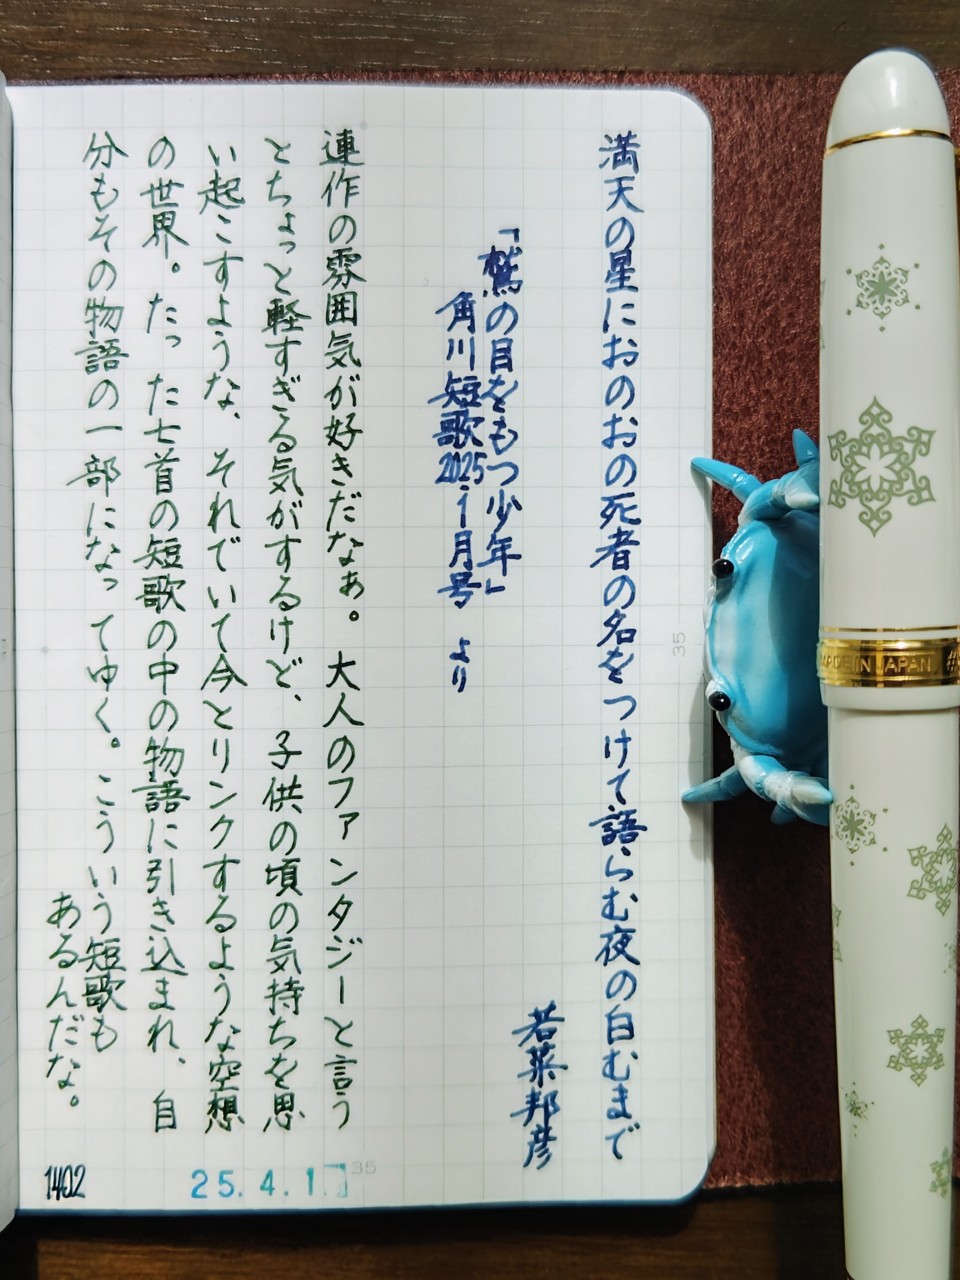 満天の星におのおの死者の名をつけて語らむ夜の白むまで
若菜邦彦
「鷲の目をもつ少年」
角川短歌2025年1月号 より
連作の雰囲気が好きだなぁ。大人のファンタジーと言う
とちょっと軽すぎる気がするけど、子供の頃の気持ちを思
い起こすような、それでいて今とリンクするような空想
の世界。たった七首の短歌の中の物語に引き込まれ、自
分もその物語の一部になってゆく。こういう短歌も
あるんだな。
1402
25.4.1
35
35
MADE IN JAPAN